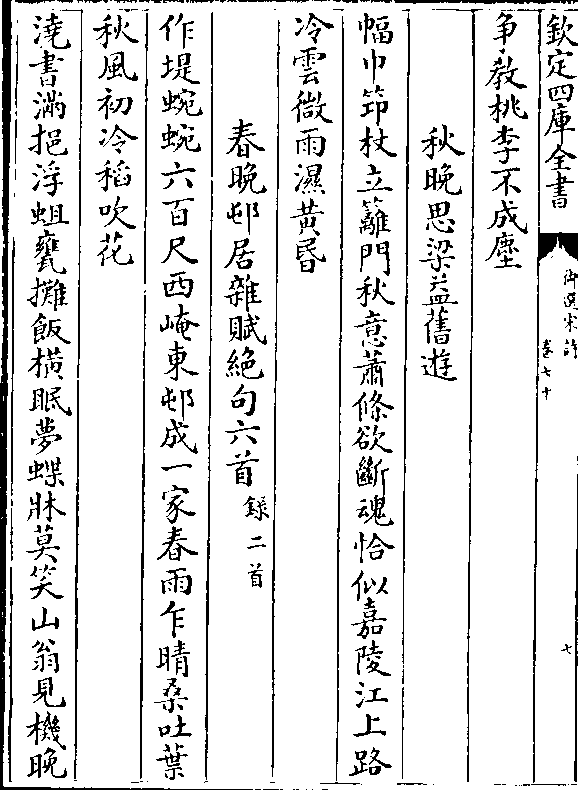 欽定四庫全書
御選宋詩
卷七十
七
争教桃李不成塵
秋晚思梁益舊遊
幅巾笻杖立籬門秋意蕭條欲斷魂恰似嘉陵江上路
冷雲微雨濕黄昏
春晚邨居雜賦絶句六首錄二首
作堤蜿蜿六百尺西崦東邨成一家春雨乍晴桑吐葉
秋風初冷稻吹花
澆書滿挹浮蛆甕攤飯横眠夢蝶牀莫笑山翁見機晚